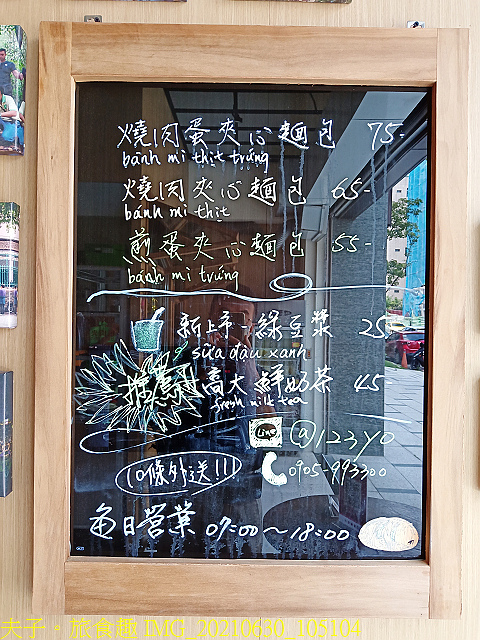 燒肉蛋夾心麵包 75-
bánh mì thịt trứng
燒肉夾心麵包 65-
bánh mì thịt
煎蛋夾心麵包 55-
bánh mì trứng
新上市-綠豆漿 25-
sữa đậu xanh
推薦 高大鮮奶茶 45
fresh milk tea
Line @123yo
10條外送!!! 0905-993300
每日營業 07:00~18:00
夫子。旅食趣 IMG_20210630_105104